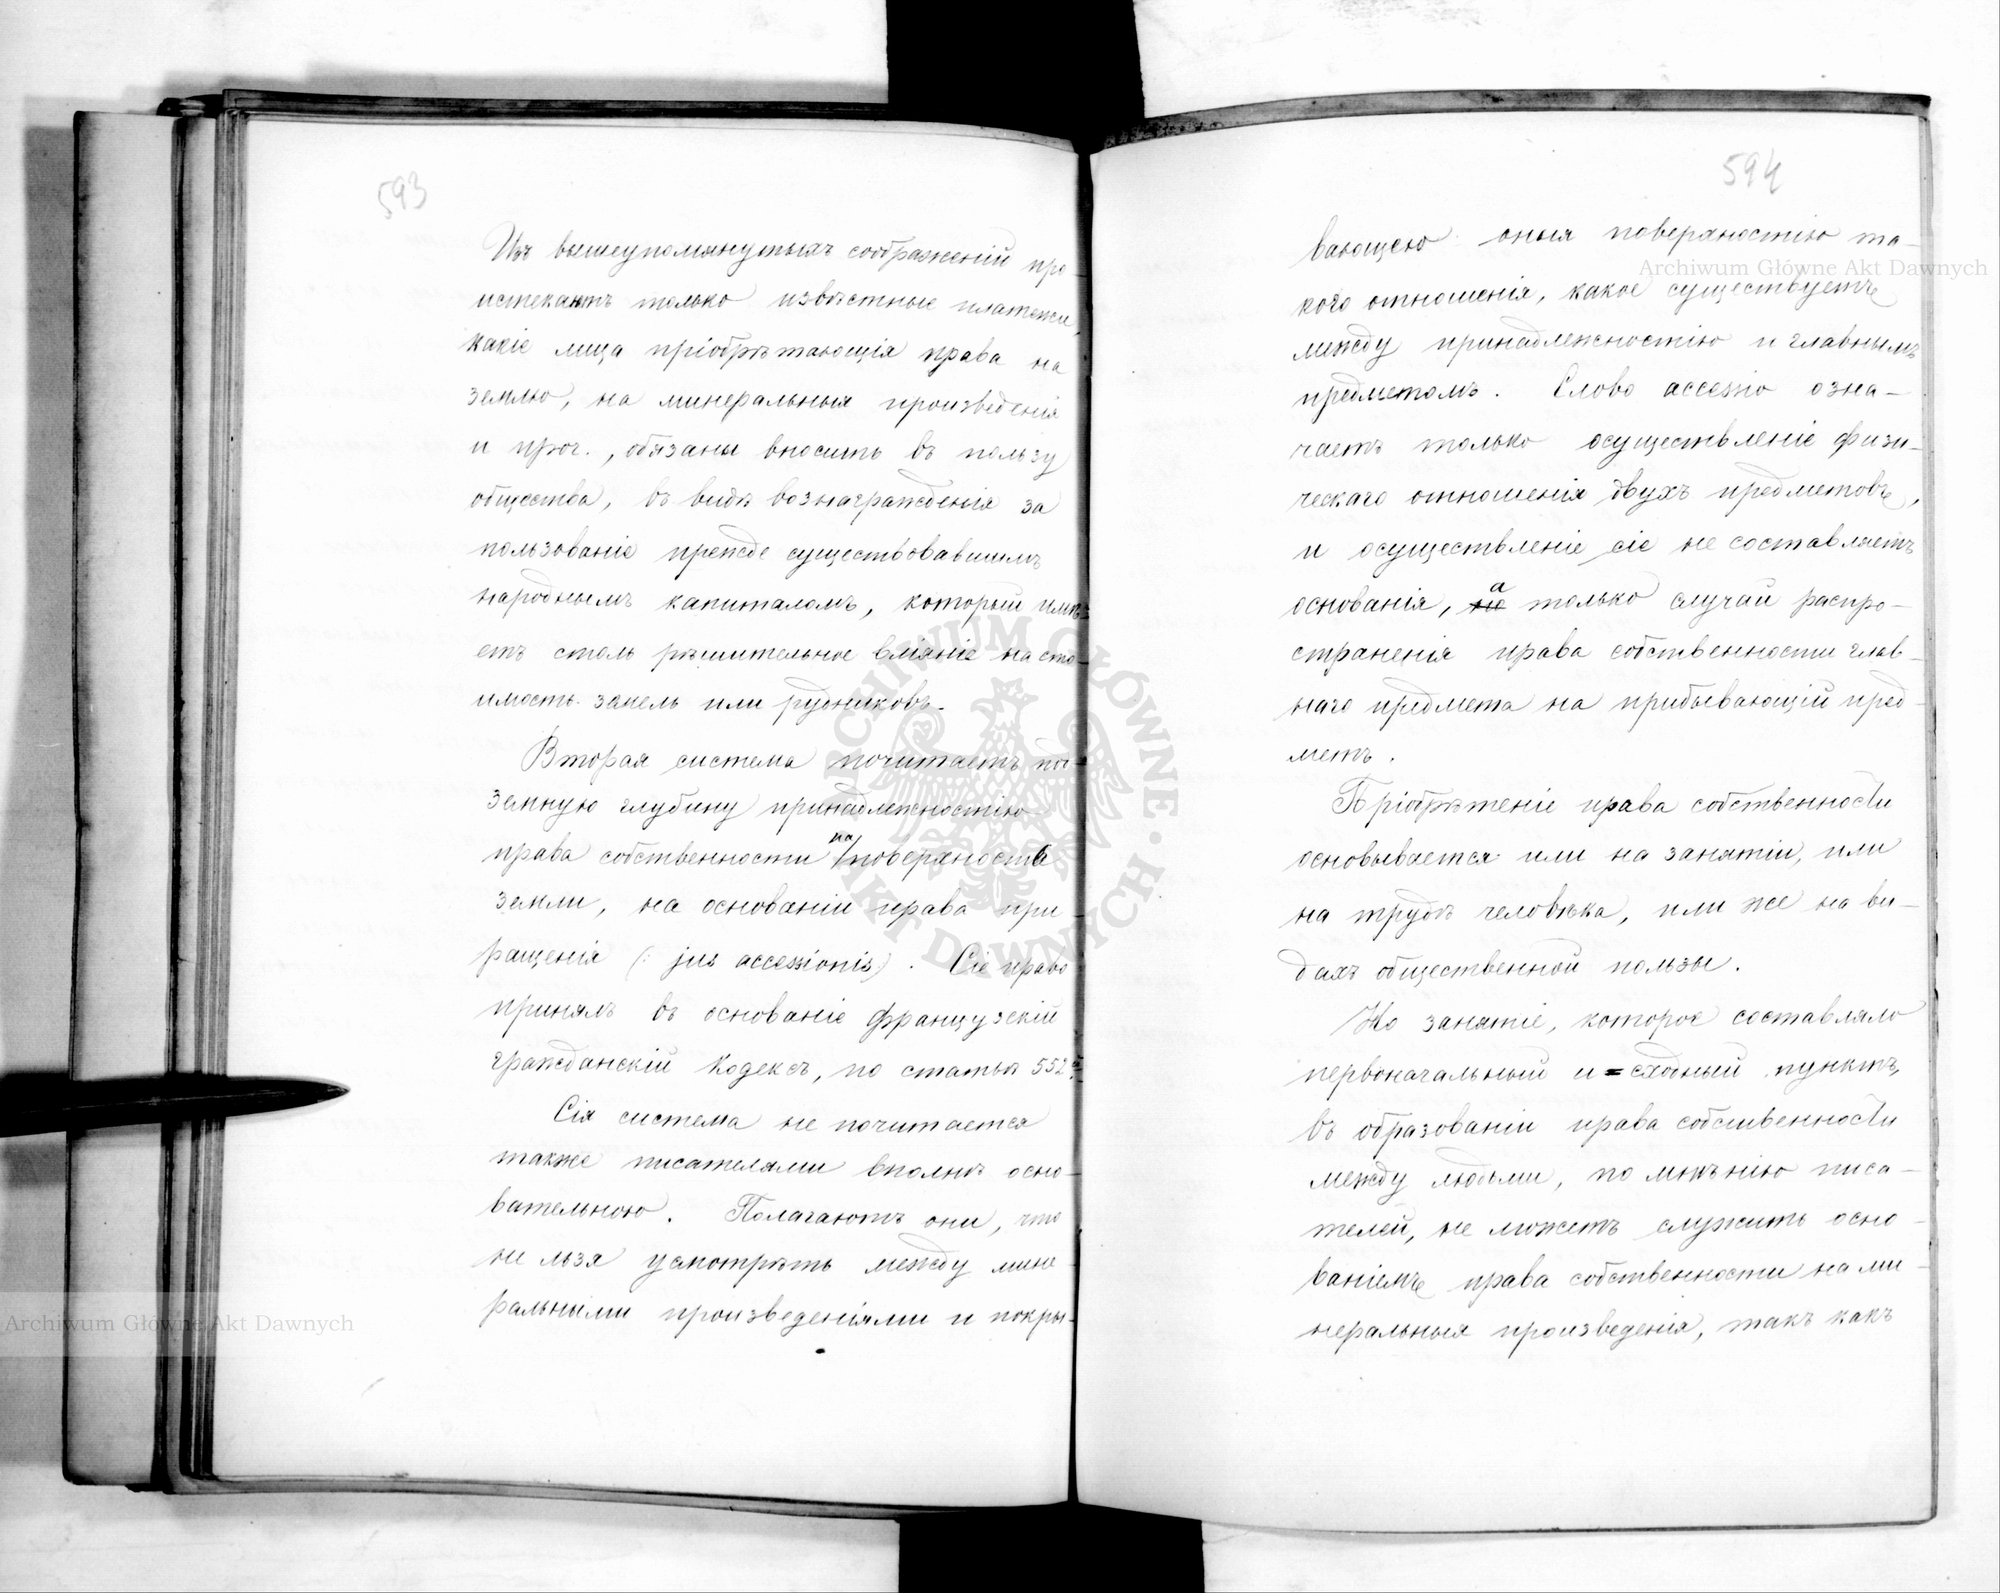 593
Изъ вышеупомянутыхъ соображеній про-
истекаютъ только извѣстные платежи,
какіе лица пріобрѣтающія права на
землю, на минеральныя произведенія
и проч., обязаны вносить въ пользу
общества, въ видѣ вознагражденія за
пользованіе прежде существовавшимъ
народнымъ капиталомъ, который имѣ-
етъ столь рѣшительное вліяніе на сто-
имость земель или рудниковъ.
Вторая система почитаетъ под-
земную глубину принадлежностію
права собственности на поверхность
земли, на основаніи права при-
ращенія (: jus accessionis). Сіе право
принялъ въ основаніе французскій
гражданскій кодексъ, по статьѣ 552й.
Сія система не почитается
также писателями вполнѣ осно-
вательною. Полагаютъ они, что
не льзя усмотрѣть между мине-
ральными произведеніями и покры-
594
вающею оныя поверхностію та-
кого отношенія, какое существуетъ
между принадлежностію и главнымъ
предметомъ. Слово accessio озна-
чаетъ только осуществленіе физи-
ческаго отношенія двухъ предметовъ,
и осуществленіе сіе не составляетъ
основанія, а только случай распро-
страненія права собственности глав-
наго предмета на прибывающій пред-
метъ.
Пріобрѣтеніе права собственности
основывается или на занятіи, или
на трудѣ человѣка, или же на ви-
дахъ общественной пользы.
Но занятіе, которое составляло
первоначальный и=сходный пунктъ,
въ образованіи права собственности
между людьми, по мнѣнію писа-
телей, не можетъ служить осно-
ваніемъ права собственности на ми-
неральныя произведенія, такъ какъ
Archiwum Główne Akt Dawnych
Archiwum Główne Akt Dawnych
ARCHIWUM GŁÓWNE · AKT DAWNYCH ·